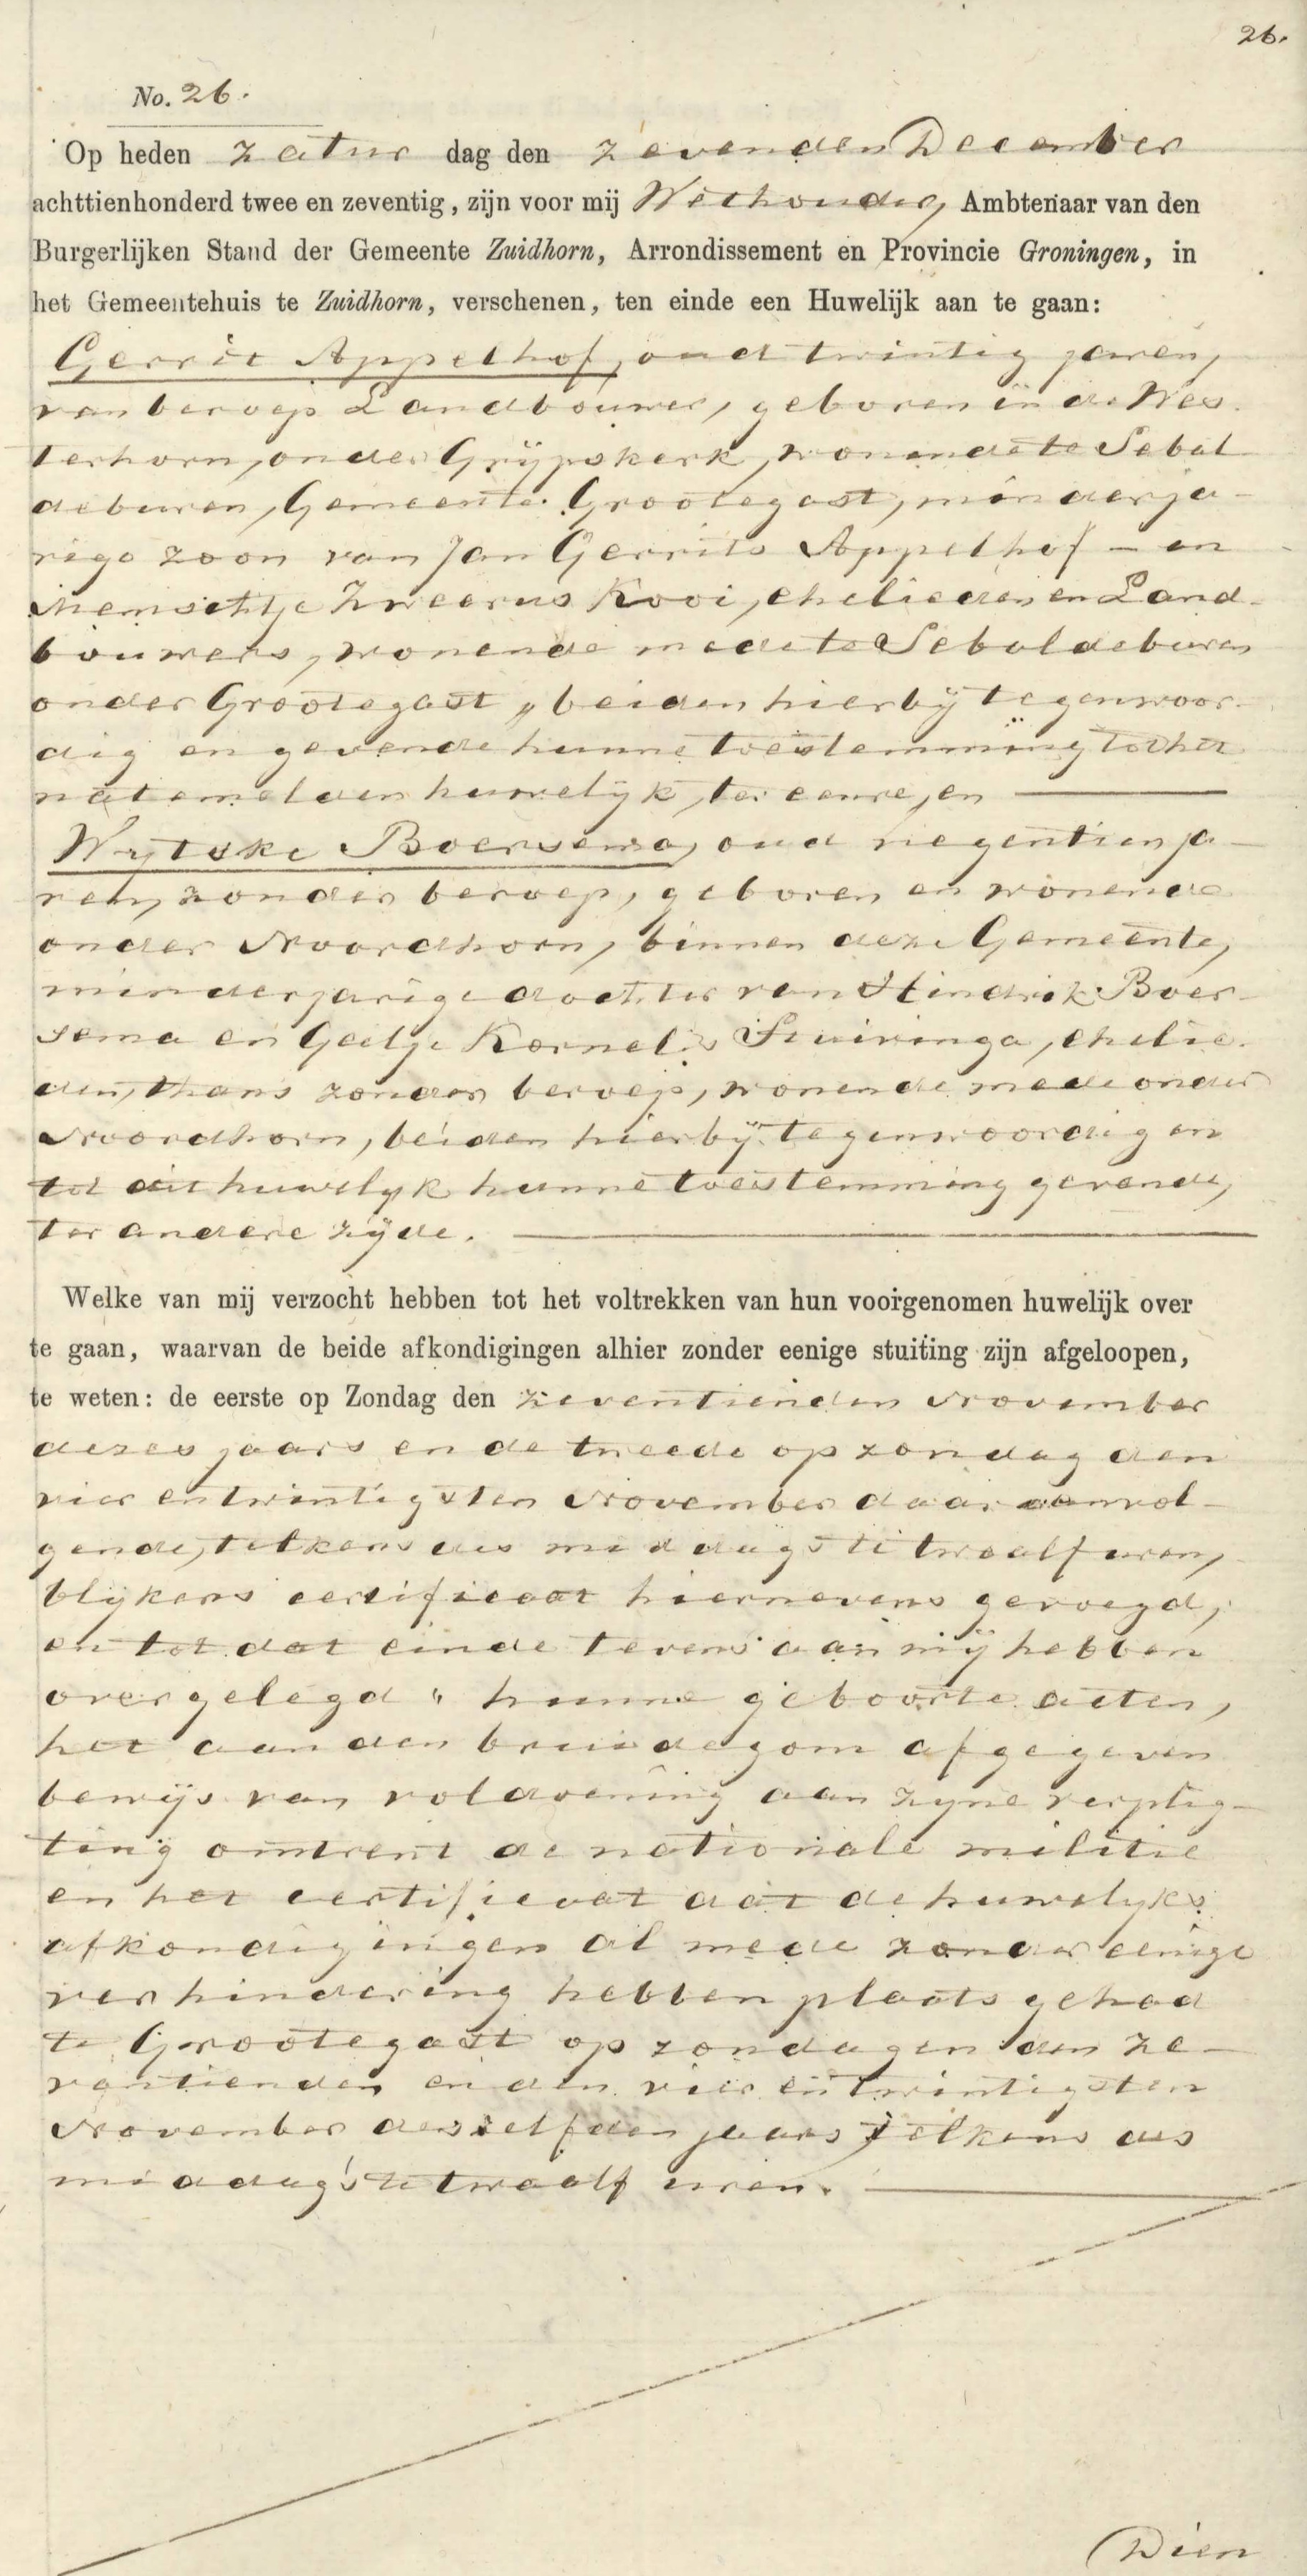 26.
No. 26.
Op heden Zatur dag den zevenden December
achttienhonderd twee en zeventig, zijn voor mij Wethouder, Ambtenaar van den
Burgerlijken Stand der Gemeente Zuidhorn, Arrondissement en Provincie Groningen, in
het Gemeentehuis te Zuidhorn, verschenen, ten einde een Huwelijk aan te gaan:
Gerrit Appelhof, oud twintig jaren,
van beroep Landbouwer, geboren in de Wes
terhorn, onder Grijpskerk, wonende te Sebal
deburen, Gemeente Grootegast, minderja-
rige zoon van Jan Gerrits Appelhof - en
Zweerus Kooi, ehelieden en Land-
bouwers, wonende mede te Sebaldeburen
onder Grootegast, beiden hierbij tegenwoor-
dig en gevende hunne toestemming tot het
natemelden huwelijk, ter eenre, en
Wytske Boersema, oud negentien ja-
ren, zonder beroep, geboren en wonende
onder Noordhorn, binnen deze Gemeente,
minderjarige dochter van Hindrik Boer-
sema en Geelje Kornelis Suiringa, ehelie-
den, thans zonder beroep, wonende mede onder
Noordhorn, beiden hierbij tegenwoordig en
tot dit huwelijk hunne toestemming gevende,
ter andere zijde.
Welke van mij verzocht hebben tot het voltrekken van hun voorgenomen huwelijk over
te gaan, waarvan de beide afkondigingen alhier zonder eenige stuiting zijn afgeloopen,
te weten: de eerste op Zondag den zeventienden November
dezes jaars en de tweede op zondag den
vier en twintigsten November daaraanvol-
gende, telkens des middags te twaalf uren,
blijkens certificaat hiernevens gevoegd,
en tot dat einde tevens aan mij hebben
overgelegd " hunne geboorte acten,
het aan den bruidegom afgegeven
bewijs van voldoening aan zijne verplig-
ting omtrent de nationale militie
en het certificaat dat de huwelijks
afkondigingen al mede zonder eenige
verhindering hebben plaats gehad
te Grootegast op zondagen den ze-
ventienden en den vier en twintigsten
November deszelfden jaars, telkens des
middags te twaalf uren.
Dien